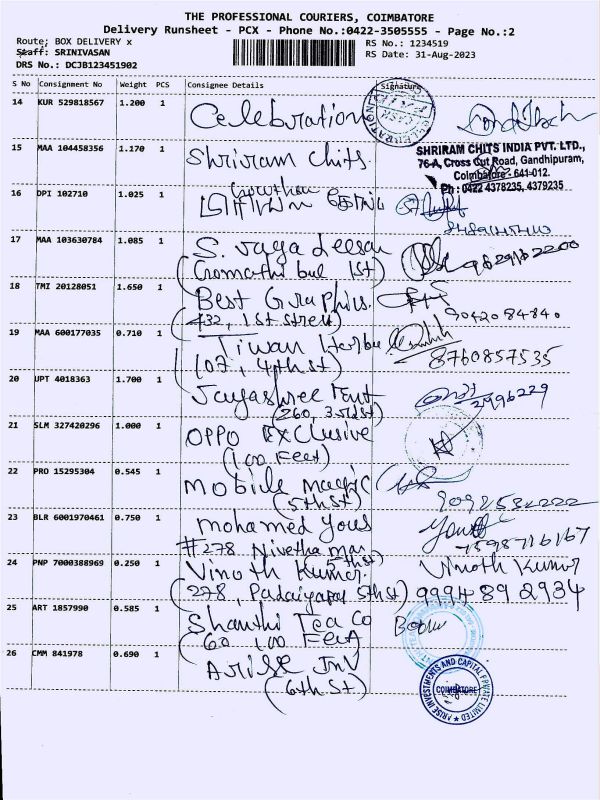 THE PROFESSIONAL COURIERS, COIMBATORE
Delivery Runsheet - PCX - Phone No.:0422-3505555 - Page No.:2
Route; BOX DELIVERY x
RS No.: 1234519
Staff: SRINIVASAN
RS Date: 31-Aug-2023
DRS No.: DCJB123451902
S No Consignment No Weight PCS Consignee Details Signature
14 KUR 529818567 1.200 1 Celebration
15 MAA 104458356 1.170 1 Shriram chits
SHRIRAM CHITS INDIA PVT. LTD.,
76-A, Cross Cut Road, Gandhipuram,
Coimbatore - 641-012.
Ph : 0422 4378235, 4379235
16 DPI 102710 1.025 1
17 MAA 103630784 1.085 1 S.
(Gomathi bul 1st)
18 TMI 20128051 1.650 1 Best Graphics
(432, 1st street) 9042084840
19 MAA 600177035 0.710 1 Tiwan Herbu
(07, 4th st) 8760857535
20 UPT 4018363 1.700 1 Jayashree
(260, 3rd st) 2496229
21 SLM 327420296 1.000 1 OPPO Exclusive
(100 Feet)
22 PRO 15295304 0.545 1 Mobile magic
(5th st)
23 BLR 6001970461 0.750 1 Mohamed Yous
#278 Nivetha
24 PNP 7000388969 0.250 1 Vinoth Kumar. Vinoth Kumar
(278, 5th st) 9994892934
25 ART 1857990 0.585 1 Shanthi Tea Co
(60 100 Feet)
26 CMM 841978 0.690 1 Arise Inv
(6th St)
ARISE INVESTMENTS AND CAPITAL PRIVATE LIMITED
COIMBATORE